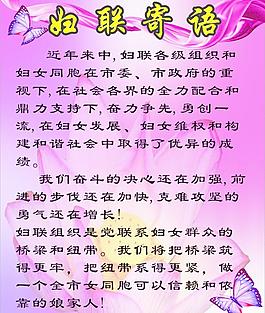 妇联寄语
近年来中,妇联各级组织和
妇女同胞在市委、市政府的重
视下,在社会各界的全力配合和
鼎力支持下,奋力争先,勇创一
流,在妇女发展、妇女维权和构
建和谐社会中取得了优异的成
绩。
我们奋斗的决心还在加强,前
进的步伐还在加快,克难攻坚的
勇气还在增长!
妇联组织是党联系妇女群众的
桥梁和纽带。我们将把桥梁筑
得更牢,把纽带系得更紧,做
一个全市女同胞可以信赖和依
靠的娘家人!